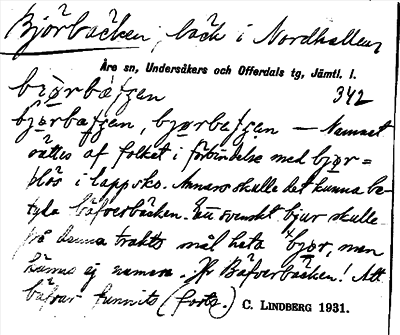 Björbäcken, bäck i Nordhallen,
Åre sn, Undersåkers och Offerdals tg, Jämtl. l.
342
— Namnet
sättes af folket i förbindelse med bjør=
blös i lappsko. Annars skulle det kunna be-
tyda bäfverbäcken. Ett svenskt bjur skulle
på denna trakts mål heta bjør, men
kännes ej numera. Jfr Bäfverbäcken! Att
bäfrar funnits (forts.) C. LINDBERG 1931.